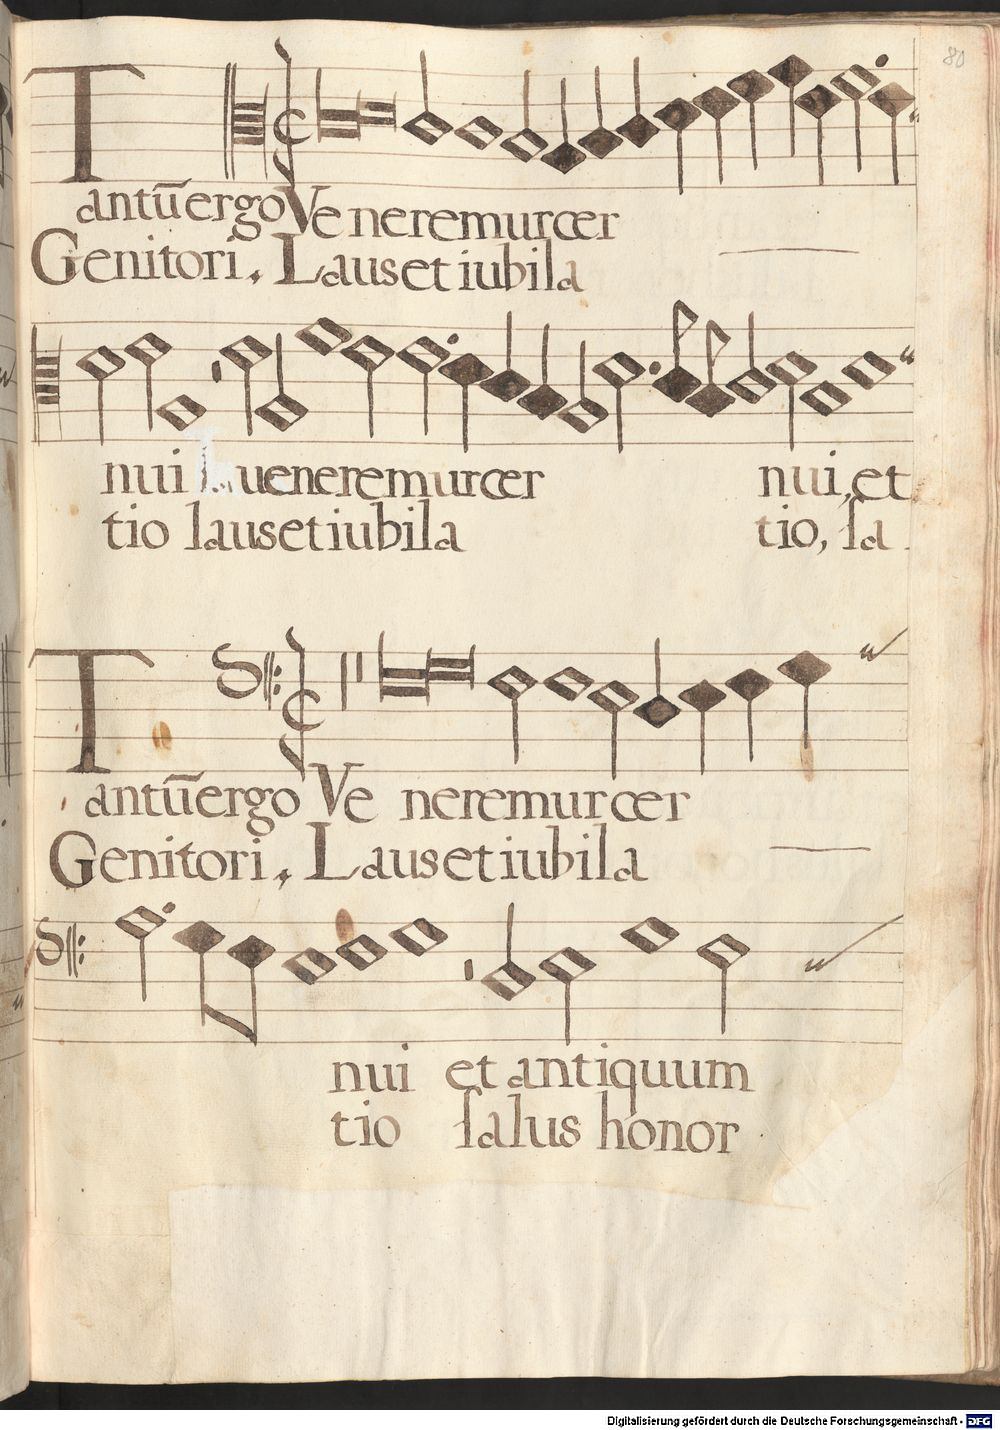 80
Tantūergo Ve neremurcer
Genitori, Lauset iubila
nui ueneremurcer nui, et
tio lausetiubila tio, ſa
Tantūergo Ve neremurcer
Genitori, Lausetiubila
nui et antiquum
tio ſalus honor
Digitalisierung gefördert durch die Deutsche Forschungsgemeinschaft - DFG